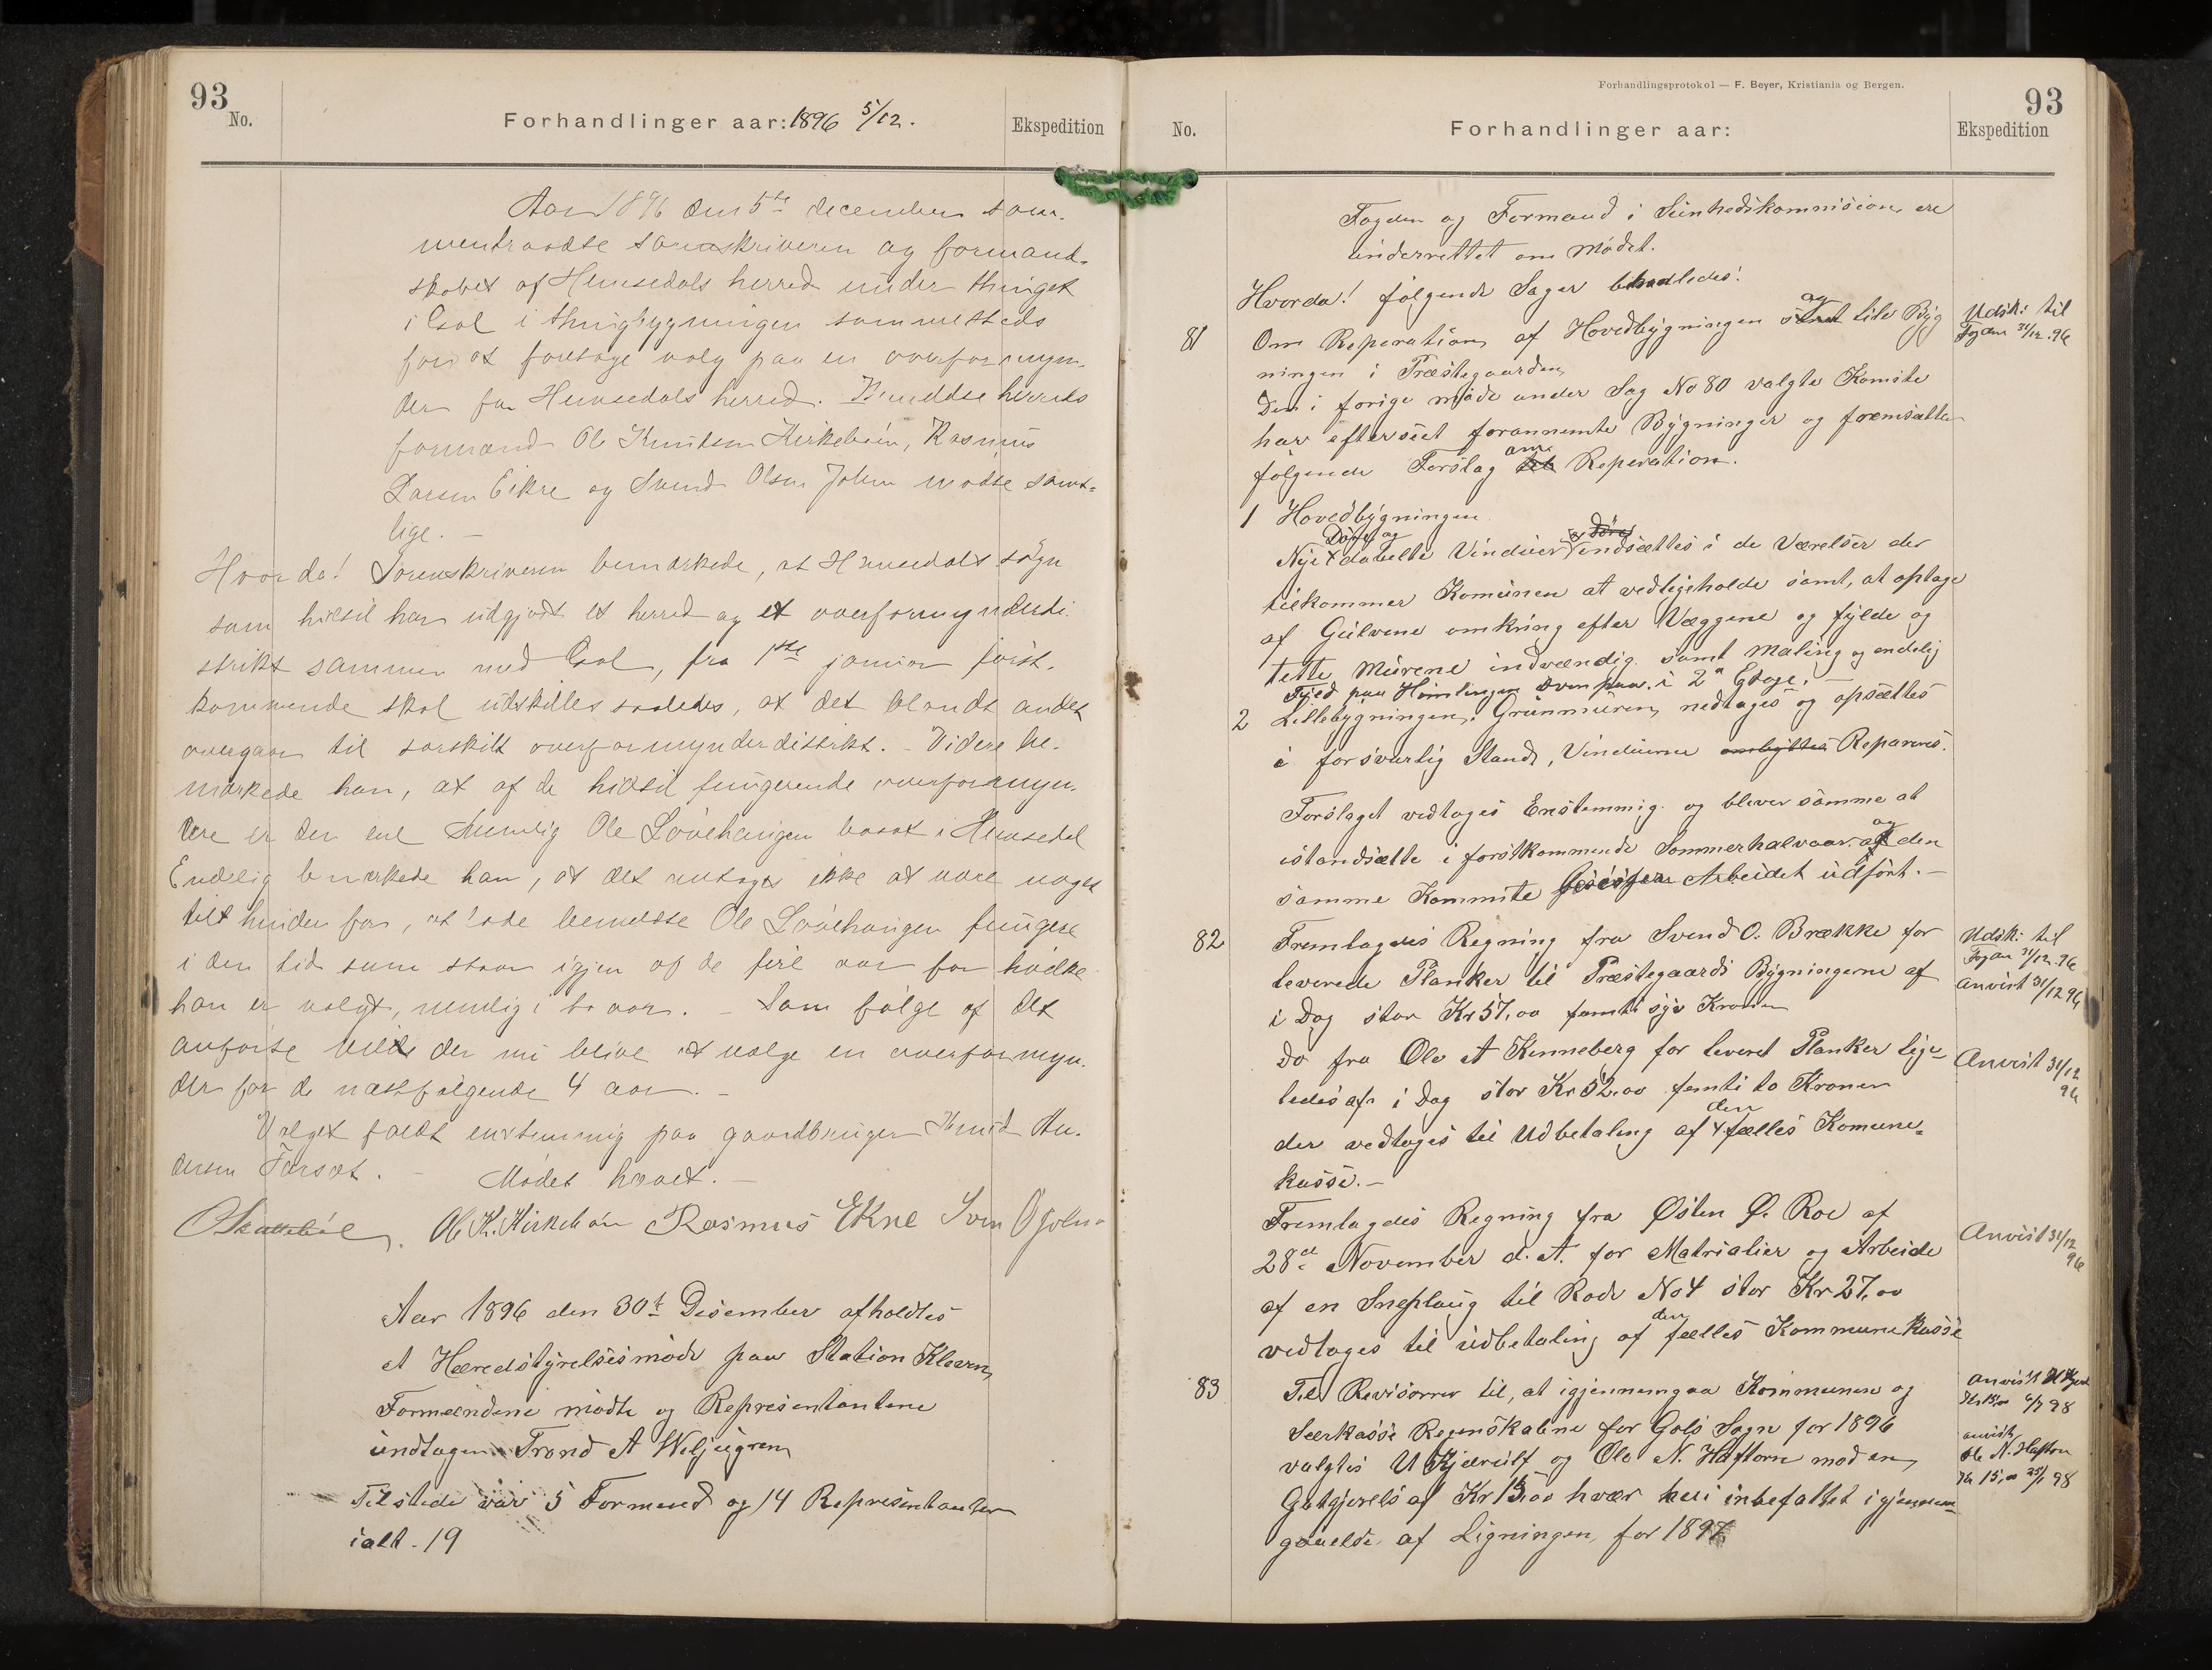 93
No.
Forhandlinger aar: 1896 5/12.
Ekspedition
Aar 1896 den 5te december sam-
mentraadte sorenskriveren og formand-
skabet af Hemsedals herred under thinget
i Gol i thingbygningen sammesteds
for at foretage valg paa en overformyn-
der for Hemsedals herred. Bemeldte herreds
formænd Ole Knutsen Kirkebøen, Rasmus
Larsen Eikre og Svend Olsen Jolen mødte samt-
lige. -
Hvorda! Sorenskriveren bemærkede, at Hemsedals sogn
som hidtil har udgjort et herred og et overformynderdi-
strikt sammen med Gol, fra 1ste januar først-
kommende skal udskilles saaledes, at det blandt andet
overgaar til særskilt overformynderdistrikt. - Videre be-
mærkede han, at af de hidtil fungerende overformyn-
dere er den ene nemlig Ole Løvehaugen bosat i Hemsedal
Endelig bemærkede han, at det antages ikke at være noget
til hinder for, at lade bemeldte Ole Løvehaugen fungere
i den tid som staar igjen af de fire aar for hvilke
han er valgt, nemlig i to aar. - Som følge af det
anførte vilde der nu blive at vælge en overformyn-
der for de næstfølgende 4 aar. -
Valget faldt enstemmig paa gaardbruger Knud An-
dersen Torset. - Mødet hævet. -
O Skattebøl. Ole K. Kirkebøen Rasmus EKre Sven O Jolen
Aar 1896 den 30te Desember afholdtes
et Hæredstyrelsesmøde paa Station Kleven
Formændene mødte og Representantene
undtagen Trond A Weljugrem
Tilstede var 5 Formænd og 14 Representanter
ialt. 19
Forhandlingsprotokol — F. Beyer, Kristiania og Bergen.
93
No.
Forhandlinger aar:
Ekspedition
Fogden og Formand i Sunhedskommision, ere
underrettet om Mødet.
Hvorda! følgende Sager behandledes!
81 Om Reperation af Hovedbygningen og lille Byg
ningen i Præstegaarden
Udsk: til
Fogden 31/12.96
Den i forige møde under Sag No 80 valgte Komite
har efterseet forannemte Bygninger og fremsætter
følgende Forslag om Reperation.
1 Hovedbygningen
Nye Døre og dobelte Vinduer indsættes i de Værelser der
tilkommer Komunen at vedligeholde samt, at optage
af Gulvene omkring efter Væggene og fylde og
tette Murene indvændig samt Maling og endelig
Fjed paa Himlingen i 2n Etage. -
2 Lillebygningen. Grunmuren, nedtages og opsættes
i forsvarlig Stand, Vinduerne ombyttes Repareres.
Forslaget vedtages Enstemmig og bliver samme at
istandsætte i forstkommende Sommerhalvaar og den
samme Kommite Arbeidet udført. -
82 Fremlagdes Regning fra Svend O. Brække for
leverede Planker til Præstegaards Bygningerne af
i Dag stor Kr 57,00 femti syv Kroner
Udsk: til
Fogden 31/12.96
Anvist 31/12 96
Do fra Ole A Kinneberg for leveret Planker lige-
ledes af i Dag stor Kr 52.00 femti to Kroner
der vedtages til Udbetaling af den fælles Komune-
kasse. -
Anvist 31/12
96
Fremlagdes Regning fra Østen Ø. Roe af
28de November d. A. for Matrialier og Arbeide
af en Sneplaug til Rode No 4 stor Kr 27.00
vedtages til udbetaling af den fælles Kommune Kasse
Anvist 31/12
96
83 Til Revisorer til, at igjennemgaa Kommunen og
Særkasse Regnskabene for Gols Sogn for 1896
valgtes U Kjærulf og Ole N. Haftorn mod en
Gotgjørels af Kr 15.00 hvær heri inbefattet igjennem-
gaaelde af Ligningen for 1897
Anvist U Kjær
Kr 15,00 6/7 98
anvist
Ole N. Haftorn
Kr 15,00 25/1 98